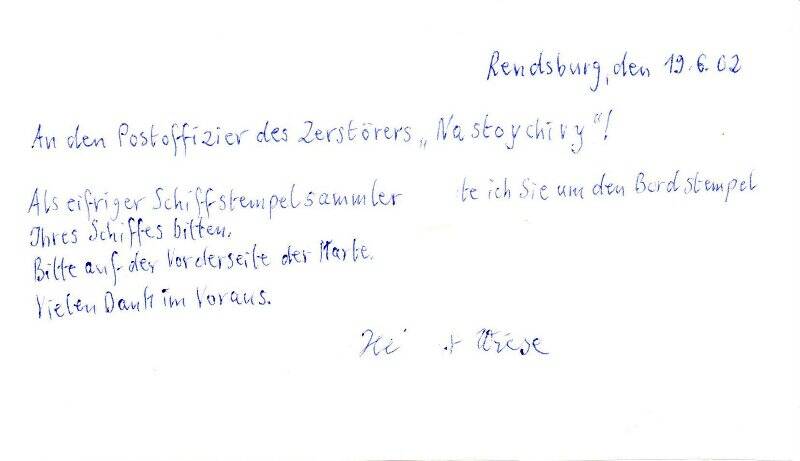 Rendsburg, den 19.6.02
An den Postoffizier des Zerstörers „Nastoychivy"!
Als eifriger Schiffstempelsammler te ich Sie um den Bordstempel
Ihres Schiffes bitten.
Bitte auf der Vorderseite der Karte.
Vielen Dank im Voraus.
Wiese